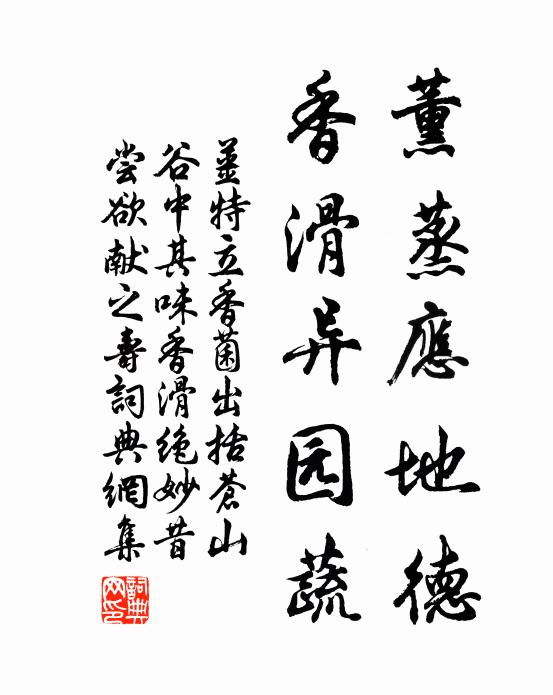 薰蒸應地德
香滑异园蔬
姜特立香菌出括蒼山
谷中其味香滑絶妙昔
尝欲献之壽詞典網集
詞典
网印